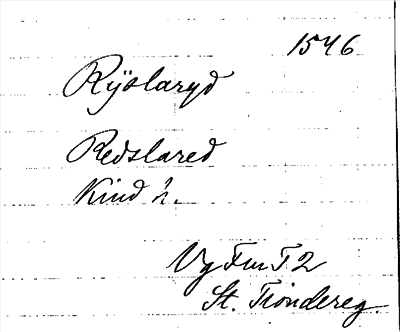 1546
Rijslaryd
Redslared
Kind h.
Vg Fm T 2
St. Tiondereg.